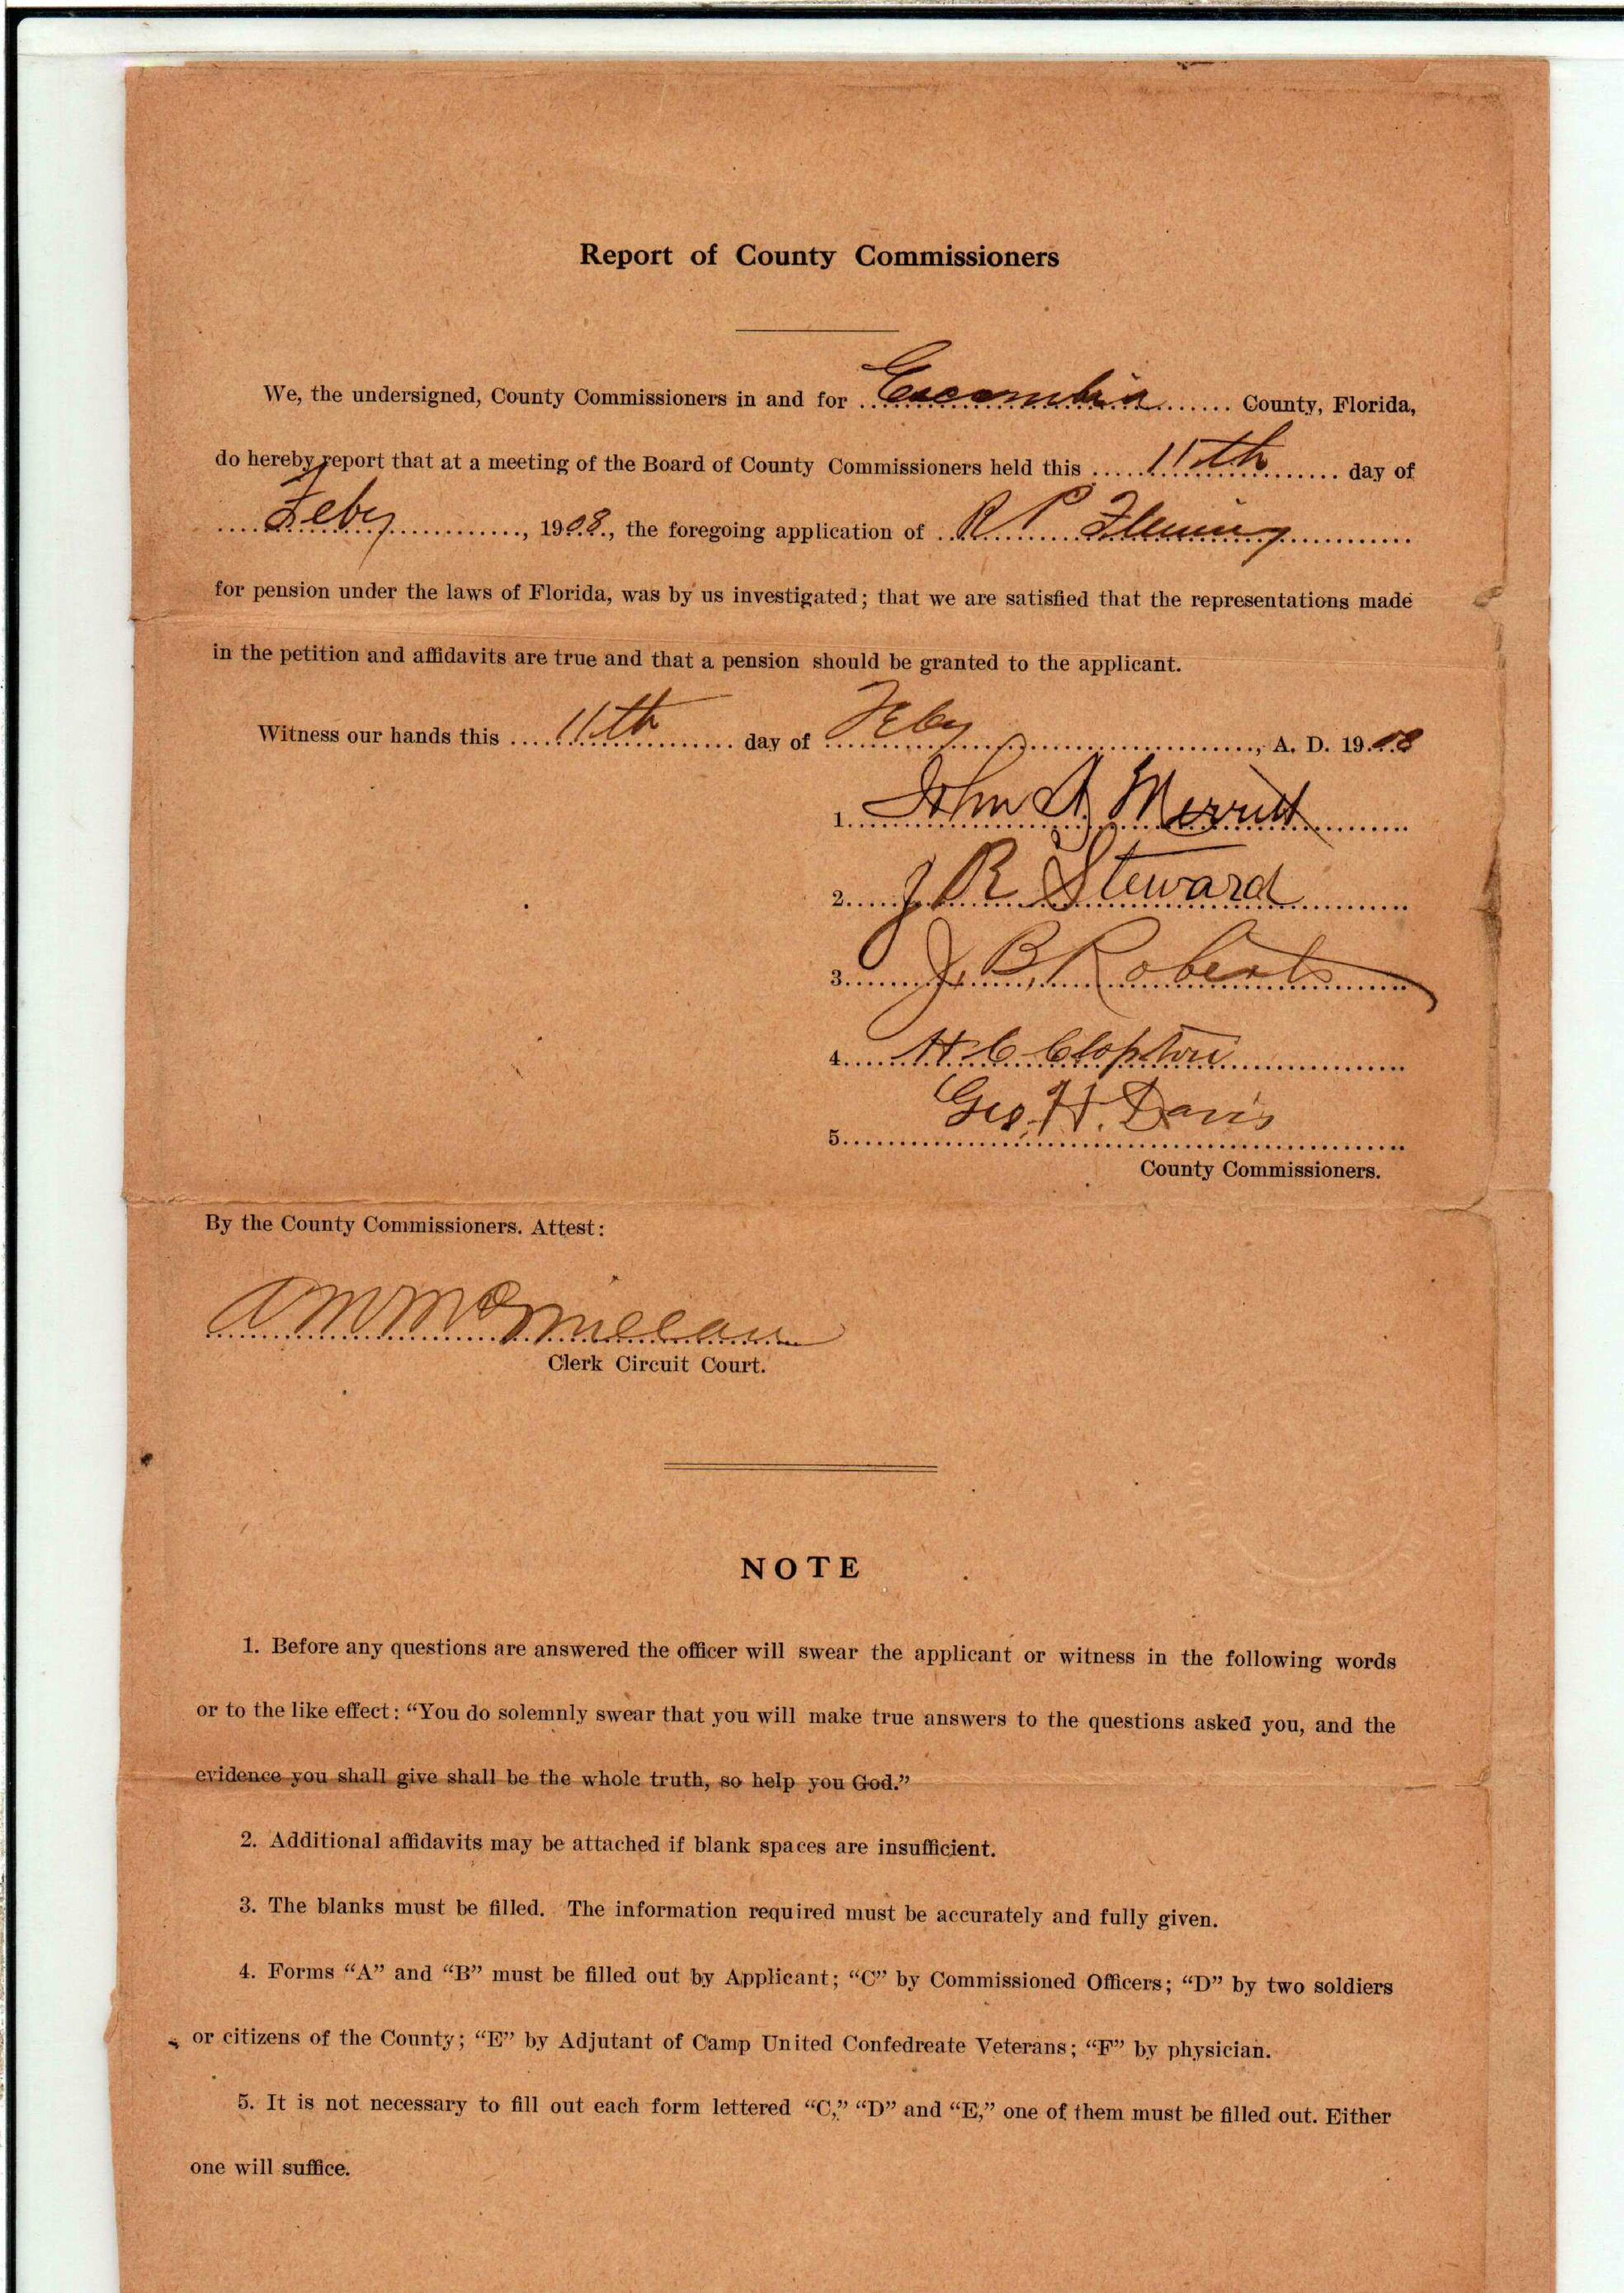 Report of County Commissioners
We, the undersigned, County Commissioners in and for Escambia County, Florida,
do hereby report that at a meeting of the Board of County Commissioners held this 11th day of
Feby, 1908, the foregoing application of R P Fleming
for pension under the laws of Florida, was by us investigated; that we are satisfied that the representations made
in the petition and affidavits are true and that a pension should be granted to the applicant.
Witness our hands this 11th day of Feby, A. D. 1908
1. John A. Merritt
2. J R Steward
3. J. B. Roberts
4. H C Clopton
Geo. H. Davis
5.
County Commissioners.
By the County Commissioners. Attest:
A M McMillan
Clerk Circuit Court.
NOTE
1. Before any questions are answered the officer will swear the applicant or witness in the following words
or to the like effect: “You do solemnly swear that you will make true answers to the questions asked you, and the
evidence you shall give shall be the whole truth, so help you God.”
2. Additional affidavits may be attached if blank spaces are insufficient.
3. The blanks must be filled. The information required must be accurately and fully given.
4. Forms “A” and “B” must be filled out by Applicant; “C” by Commissioned Officers; “D” by two soldiers
or citizens of the County; “E” by Adjutant of Camp United Confedreate Veterans; “F” by physician.
5. It is not necessary to fill out each form lettered “C,” “D” and “E,” one of them must be filled out. Either
one will suffice.